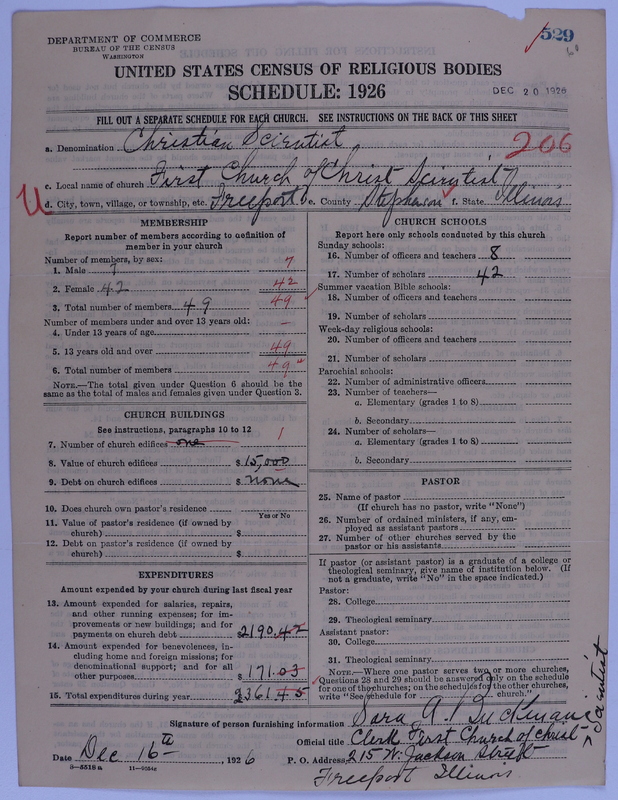 529
60
DEPARTMENT OF COMMERCE
BUREAU OF THE CENSUS
WASHINGTON
UNITED STATES CENSUS OF RELIGIOUS BODIES
SCHEDULE: 1926
DEC 20 1926
FILL OUT A SEPARATE SCHEDULE FOR EACH CHURCH. SEE INSTRUCTIONS ON THE BACK OF THIS SHEET
a. Denomination Christian Scientist
206
c. Local name of church First Church of Christ Scientist
U
d. City, town, village, or township, etc. Freeport e. County Stephenson f. State Illinois
MEMBERSHIP
Report number of members according to definition of
member in your church
Number of members, by sex:
1. Male 7 7
2. Female 42 42
3. Total number of members 49 49
Number of members under and over 13 years old:
4. Under 13 years of age –
5. 13 years old and over 49
6. Total number of members 49
NOTE.—The total given under Question 6 should be
same as the total of males and females given under Question 3.
CHURCH BUILDINGS
See instructions, paragraphs 10 to 12
7. Number of church edifices one 1
8. Value of church edifices $ 15,000
9. Debt on church edifices $ none
10. Does church own pastor's residence
Yes or No
11. Value of pastor's residence (if owned by
church) $
12. Debt on pastor's residence (if owned by
church) $
EXPENDITURES
Amount expended by your church during last fiscal year
13. Amount expended for salaries, repairs,
and other running expenses; for im-
provements or new buildings; and for
payments on church debt $2190.42
14. Amount expended for benevolences, in-
cluding home and foreign missions; for
denominational support; and for all
other purposes $ 171.03
15. Total expenditures during year $2361.45
CHURCH SCHOOLS
Report here only schools conducted by this church
Sunday schools:
16. Number of officers and teachers 8
17. Number of scholars 42
Summer vacation Bible schools:
18. Number of officers and teachers
19. Number of scholars
Week-day religious schools:
20. Number of officers and teachers
21. Number of scholars
Parochial schools:
22. Number of administrative officers
23. Number of teachers—
a. Elementary (grades 1 to 8)
b. Secondary
24. Number of scholars—
a. Elementary (grades 1 to 8)
b. Secondary
PASTOR
25. Name of pastor
(If church has no pastor, write "None")
26. Number of ordained ministers, if any, em-
ployed as assistant pastors
27. Number of other churches served by the
pastor or his assistants
If pastor (or assistant pastor) is a graduate of a college or
theological seminary, give name of institution below. (If
not a graduate, write "No" in the space indicated.)
Pastor:
28. College
29. Theological seminary
Assistant pastor:
30. College
31. Theological seminary
NOTE.—Where one pastor serves two or more churches,
Questions 28 and 29 should be answered only on the schedule
for one of the churches; on the schedules for the other churches,
write "See schedule for church."
Signature of person furnishing information Sara A. Buckman
Official title Clerk First Church of Christ Scientist
Date Dec 16th, 1926 P. O. Address 215 W. Jackson Street
Freeport Illinois.
8—5518 a 11—9054c